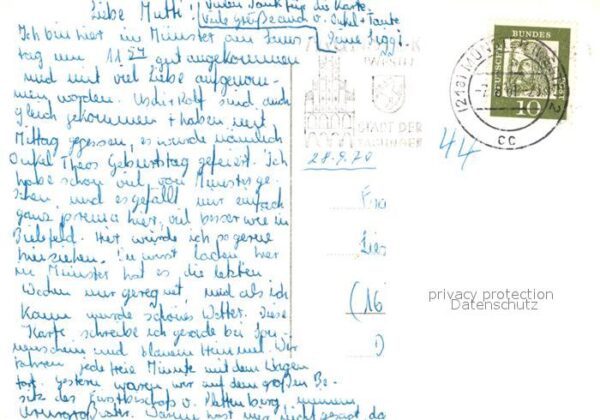 Liebe Mutti! Vielen Dank für die Karte.
Viele Grüße auch v. Onkel + Tante
Ich bin hier in Münster am Samstag um 11 57 gut angekommen
und mit viel Liebe aufgenommen
worden. sind auch
gleich gekommen + haben mit
Mittag gegessen, es wurde nämlich
Onkel Theos Geburtstag gefeiert. Ich
habe schon viel von Münster ge-
sehen, und es gefällt mir einfach
ganz prima hier, viel besser wie in
Bielefeld. Hier würde ich so gerne
hinziehen. Du wirst lachen hier
in Münster hat es die letzten
Wochen nur geregnet, und als ich
kam wurde schönes Wetter. Diese
Karte schreibe ich gerade bei Son-
nenschein und blauem Himmel. Wir
fahren jede freie Minute mit dem Wagen
fort. Gestern waren wir auf dem großen Be-
sitz des Fürstbischofs v. Plettenburg, meinem
Warum hast mir nicht gesagt da
STADT DER
DEUTSCHE BUNDES
10
cc
28.9.70
44
Frau
Lies
(16
D
privacy protection
Datenschutz